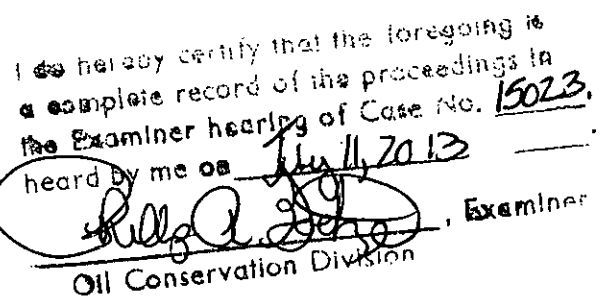 I do hereby certify that the foregoing is
a complete record of the proceedings in
the Examiner hearing of Case No. 15023.
heard by me on July 11, 2013
, Examiner
Oil Conservation Division